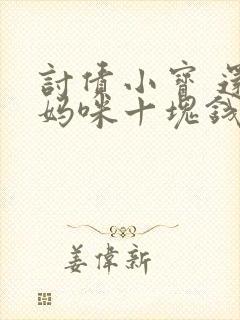 討債小寶還
媽咪十塊錢
姜偉新